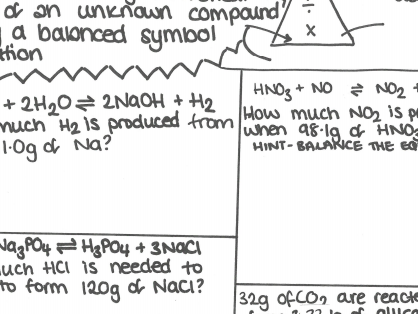 of an unknown compound
a balanced symbol
÷
x
+ 2H₂O ⇌ 2NaOH + H₂
much H₂ is produced from
1.0g of Na?
HNO₃ + NO ⇌ NO₂ +
How much NO₂ is
when 98.1g of HNO₃
HINT-BALANCE THE
Na₃PO₄ ⇌ H₃PO₄ + 3NaCl
much HCl is needed to
to form 120g of NaCl?
32g of CO₂ are